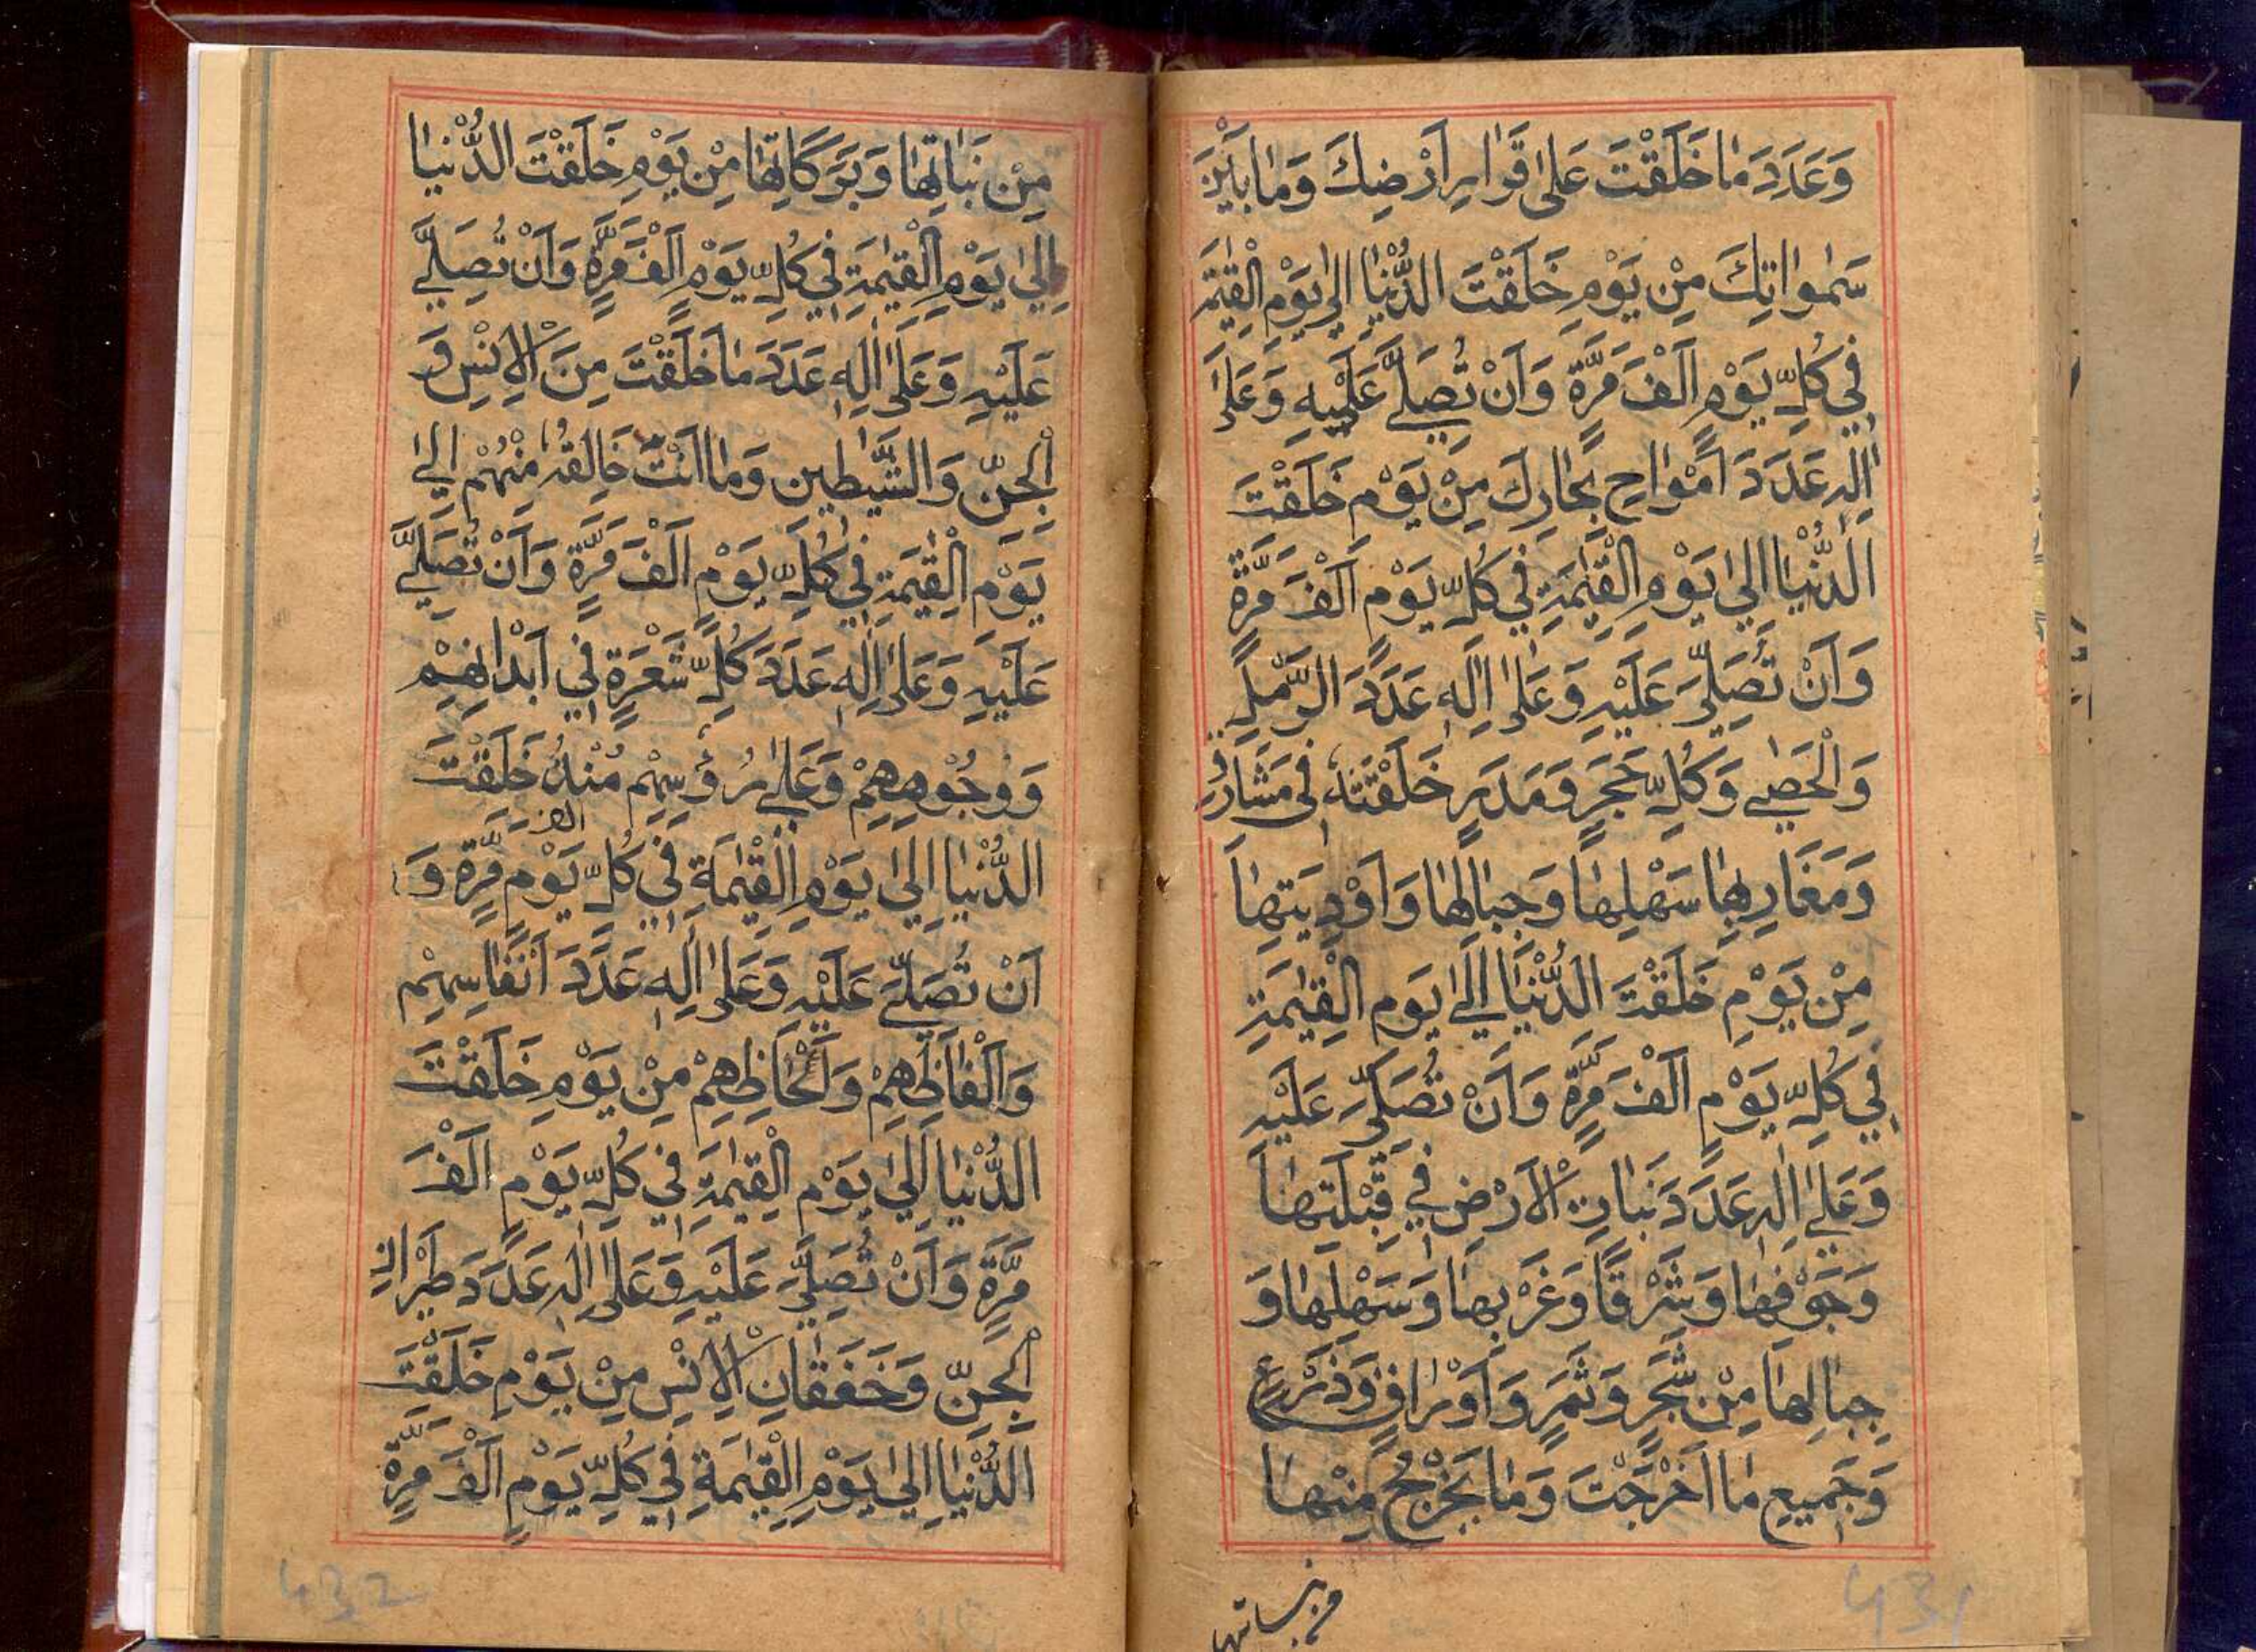 وَعَدَدَ مَا خَلَقْتَ عَلٰى قَرَارِ اَرْضِكَ وَمَا بَيْنَ
سَمٰوَاتِكَ مِنْ يَوْمِ خَلَقْتَ الدُّنْيَا اِلٰى يَوْمِ الْقِيٰمَةِ
فِي كُلِّ يَوْمٍ اَلْفَ مَرَّةٍ وَاَنْ تُصَلِّيَ عَلَيْهِ وَعَلٰى
اٰلِهٖ عَدَدَ اَمْوَاجِ بِحَارِكَ مِنْ يَوْمِ خَلَقْتَ
الدُّنْيَا اِلٰى يَوْمِ الْقِيٰمَةِ فِي كُلِّ يَوْمٍ اَلْفَ مَرَّةٍ
وَاَنْ تُصَلِّيَ عَلَيْهِ وَعَلٰى اٰلِهٖ عَدَدَ الرَّمْلِ
وَالْحَصٰى وَكُلِّ حَجَرٍ وَمَدَرٍ خَلَقْتَهٗ فِي مَشَارِقِ
وَمَغَارِبِهَا سَهْلِهَا وَجِبَالِهَا وَاَوْدِيَتِهَا
مِنْ يَوْمِ خَلَقْتَ الدُّنْيَا اِلٰى يَوْمِ الْقِيٰمَةِ
فِي كُلِّ يَوْمٍ اَلْفَ مَرَّةٍ وَاَنْ تُصَلِّيَ عَلَيْهِ
وَعَلٰى اٰلِهٖ عَدَدَ نَبَاتِ الْاَرْضِ فِي قِبْلَتِهَا
وَجَوْفِهَا وَشَرْقًا وَغَرْبِهَا وَسَهْلِهَا وَ
جِبَالِهَا مِنْ شَجَرٍ وَثَمَرٍ وَاَوْرَاقٍ وَذَرْعٍ
وَجَمِيعِ مَا اَخْرَجَتْ وَمَا يَخْرُجُ مِنْهَا
مِنْ نَبَاتِهَا وَبَرَكَاتِهَا مِنْ يَوْمِ خَلَقْتَ الدُّنْيَا
اِلٰى يَوْمِ الْقِيٰمَةِ فِي كُلِّ يَوْمٍ اَلْفَ مَرَّةٍ وَاَنْ تُصَلِّيَ
عَلَيْهِ وَعَلٰى اٰلِهٖ عَدَدَ مَا خَلَقْتَ مِنَ الْاِنْسِ وَ
الْجِنِّ وَالشَّيٰطِينِ وَمَا اَنْتَ خَالِقُهٗ مِنْهُمْ اِلٰى
يَوْمِ الْقِيٰمَةِ فِي كُلِّ يَوْمٍ اَلْفَ مَرَّةٍ وَاَنْ تُصَلِّيَ
عَلَيْهِ وَعَلٰى اٰلِهٖ عَدَدَ كُلِّ شَعْرَةٍ فِي اَبْدَانِهِمْ
وَوُجُوهِهِمْ وَعَلٰى رُؤُسِهِمْ مُنْذُ خَلَقْتَ
الدُّنْيَا اِلٰى يَوْمِ الْقِيٰمَةِ فِي كُلِّ يَوْمٍ اَلْفَ مَرَّةٍ وَ
اَنْ تُصَلِّيَ عَلَيْهِ وَعَلٰى اٰلِهٖ عَدَدَ اَنْفَاسِهِمْ
وَاَلْفَاظِهِمْ وَاَلْحَاظِهِمْ مِنْ يَوْمِ خَلَقْتَ
الدُّنْيَا اِلٰى يَوْمِ الْقِيٰمَةِ فِي كُلِّ يَوْمٍ اَلْفَ
مَرَّةٍ وَاَنْ تُصَلِّيَ عَلَيْهِ وَعَلٰى اٰلِهٖ عَدَدَ طَيْرَانِ
الْجِنِّ وَخَفَقَانِ الْاِنْسِ مِنْ يَوْمِ خَلَقْتَ
الدُّنْيَا اِلٰى يَوْمِ الْقِيٰمَةِ فِي كُلِّ يَوْمٍ اَلْفَ مَرَّةٍ
431
432